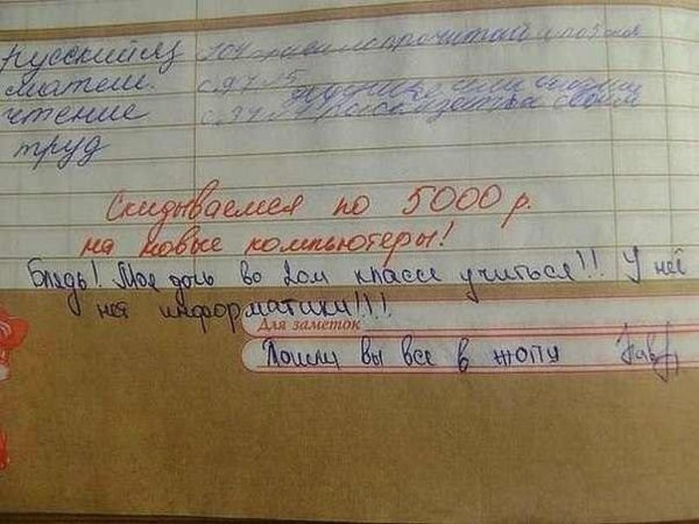 русский яз 104 прочитай
матем. с. 97 №5
чтение с. 94 №4 рассказ
труд
Скидываемся по 5000 р.
на новые компьютеры!
Блядь! Моя дочь во 2ом классе учиться!!! У неё
нея информатики!!!!
Для заметок
Пошли вы все в жопу